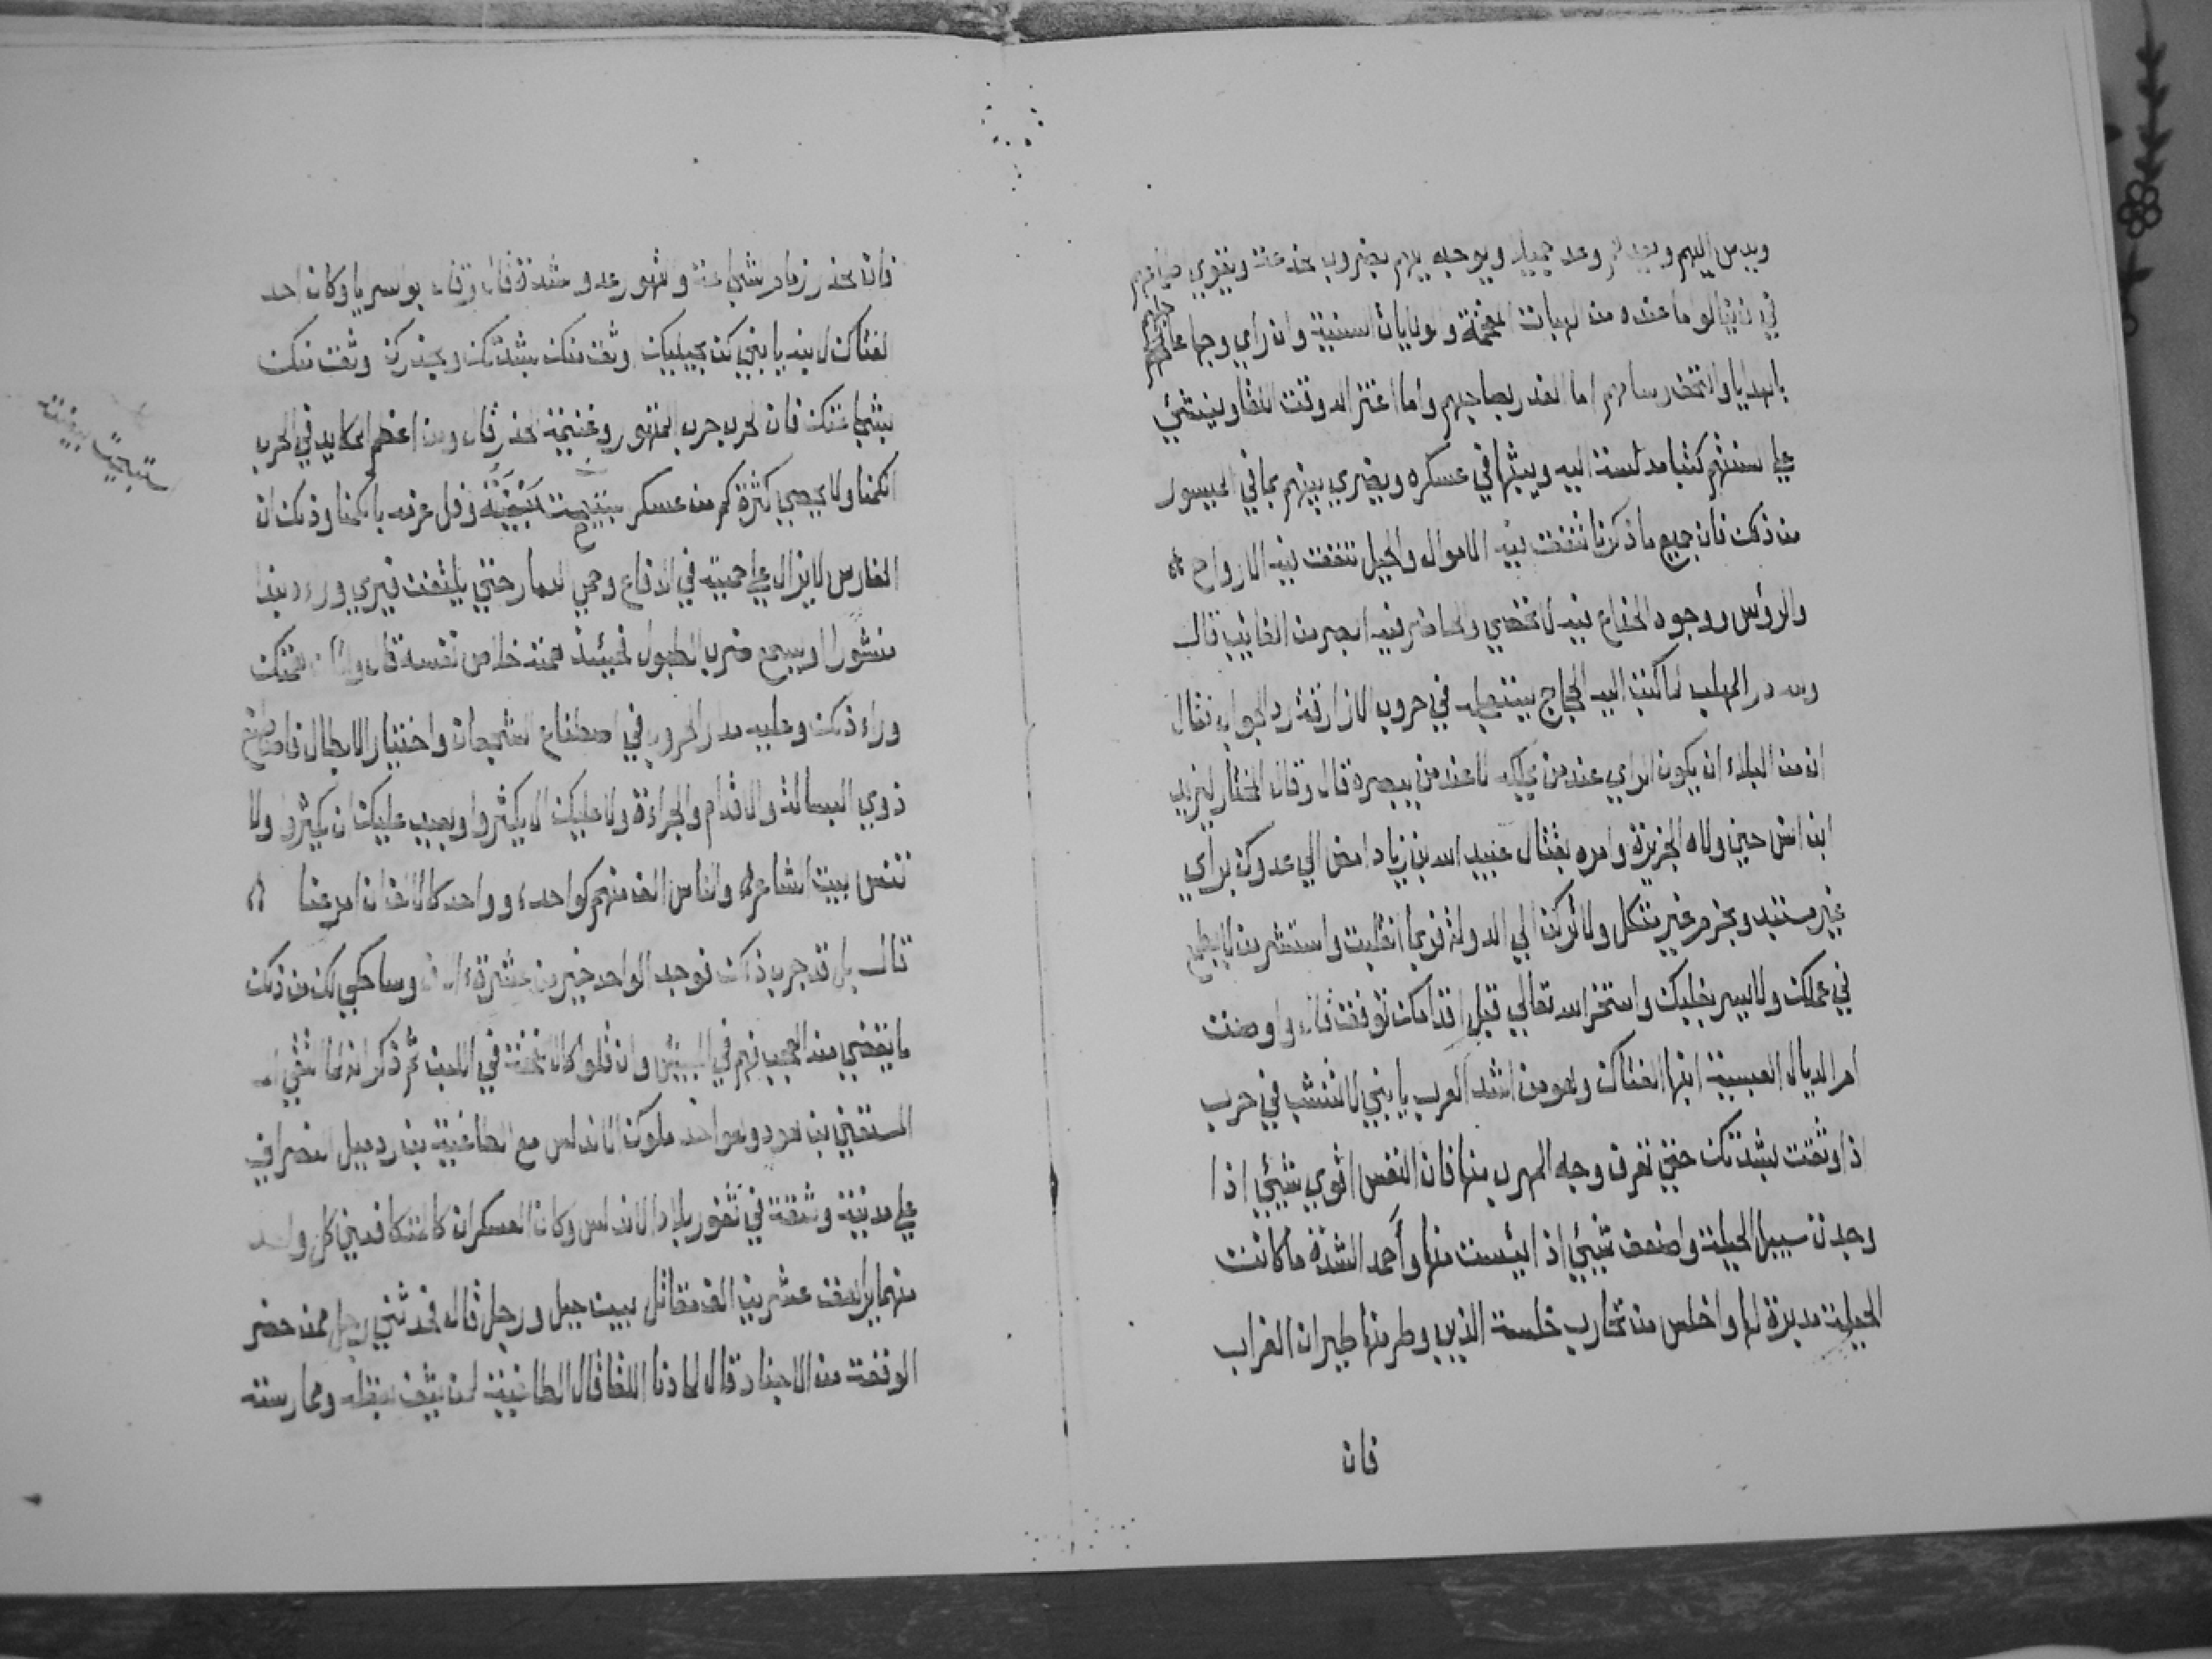 ويدس اليهم ويعدهم وعدا جميلا ويوجه اليهم بضروب بخدعة ويقوي
في نيالو ما عنده من الهبات المفخمة والولايات السنية وان راي وجها عاجلهم
بالهدايا والتحف وسامهم اما الغدر بصاحبهم واما اعتزاله وقت اللقا وينشئي
علي السنتهم كتبا مدلسة اليه ويبثها في عسكره ويضري بينهم بما في الميسور
من ذلك فان جميع ما ذكرنا تنفق فيه الاموال والحيل تنفق فيه الارواح
والرؤس ووجوه الخداع فيه لا تحصي والحاضر فيه ابصر من الغائب قال
ولله در المهلب لما كتب اليه الحجاج يستعجله في حروب الازارقة رد الجواب فقال
ان من البلاء ان يكون الراي عند من يملكه لا عند من يبصره قال وقال المختار ليزيد
ابن انس حين ولاه الجزيرة وامره بقتال عبيد الله بن زياد امض الي عدوك براي
غير مستبد وبحزم غير متكل ولا تركن الي الدولة فربما انقلبت واستشر من لا يطمع
في عملك ولا يسر بغلبك واستخر الله تعالي قبل اقدامك توفق قال واوصت
ام الديال العبسية ابنها الفتاك وهو من اشد العرب يا بني لا تنشب في حرب
اذا وثقت بشدتك حتي تعرف وجه المهرب منها فان النفس اقوي شيئي اذا
وجدت سبيل الحيلة واضعف شيئي اذا ايئست منها وأحمد الشدة ما كانت
الحيلة مدبرة لها واخلس من تحارب خلسة الذيب وطر منها طيران الغراب
فان
فان الحذر زمام الشجاعة والتهور عدو الشدة قال وقال ابو السرايا وكان احد
الفتاك لابنه يا بني كن بحيلتك اوثق منك بشدتك وبحذرك اوثق منك
بشجاعتك فان الحرب حرب المتهور وغنيمة الحذر قال ومن اعظم المكايد في الحرب
الكمنا ولا يحصي كثرة كم من عسكر استبيحت بيضته وفل غربه بالكمنا وذلك ان
الفارس لا يزال علي حمية في الدفاع وحمي الذمار حتي يلتفت فيري وراءه بندا
منشورا ويسمع ضرب الطبول فحينئذ همته خلاص نفسه قال
وراء ذلك وعليه مدار الحروب في اصطناع الشجعان واختيار الابطال فاصطنع
ذوي البسالة والاقدام والجراءة ولا عليك الا يكثروا وبعيب عليك ان يكثروا ولا
تنس بيت الشاعر والناس الف منهم كواحد، وواحد كالالف ان امر عنا
قال بل قد جرب ذلك فوجد الواحد خير من عشرة الاف وساحكي لك من ذلك
ما يقضي منه العجب فهم في وان قلوا كالانفحة في اللبن ثم ذكر انه لما التقي
المستعين بن هود وهو احد ملوك الاندلس مع الطاغية بن ردميل النصراني
علي مدينة وشقة في ثغور بلاد الاندلس وكان العسكران كالمتكافيين كل واحد
منهما يراهق عشرين الف مقاتل بين خيل ورجل قال فحدثني رجل ممن حضر
الوقعة من الاجناد قال لما دنا اللقا قال الطاغية لمن يثق بعقله وممارسته
استبيحت بيضته